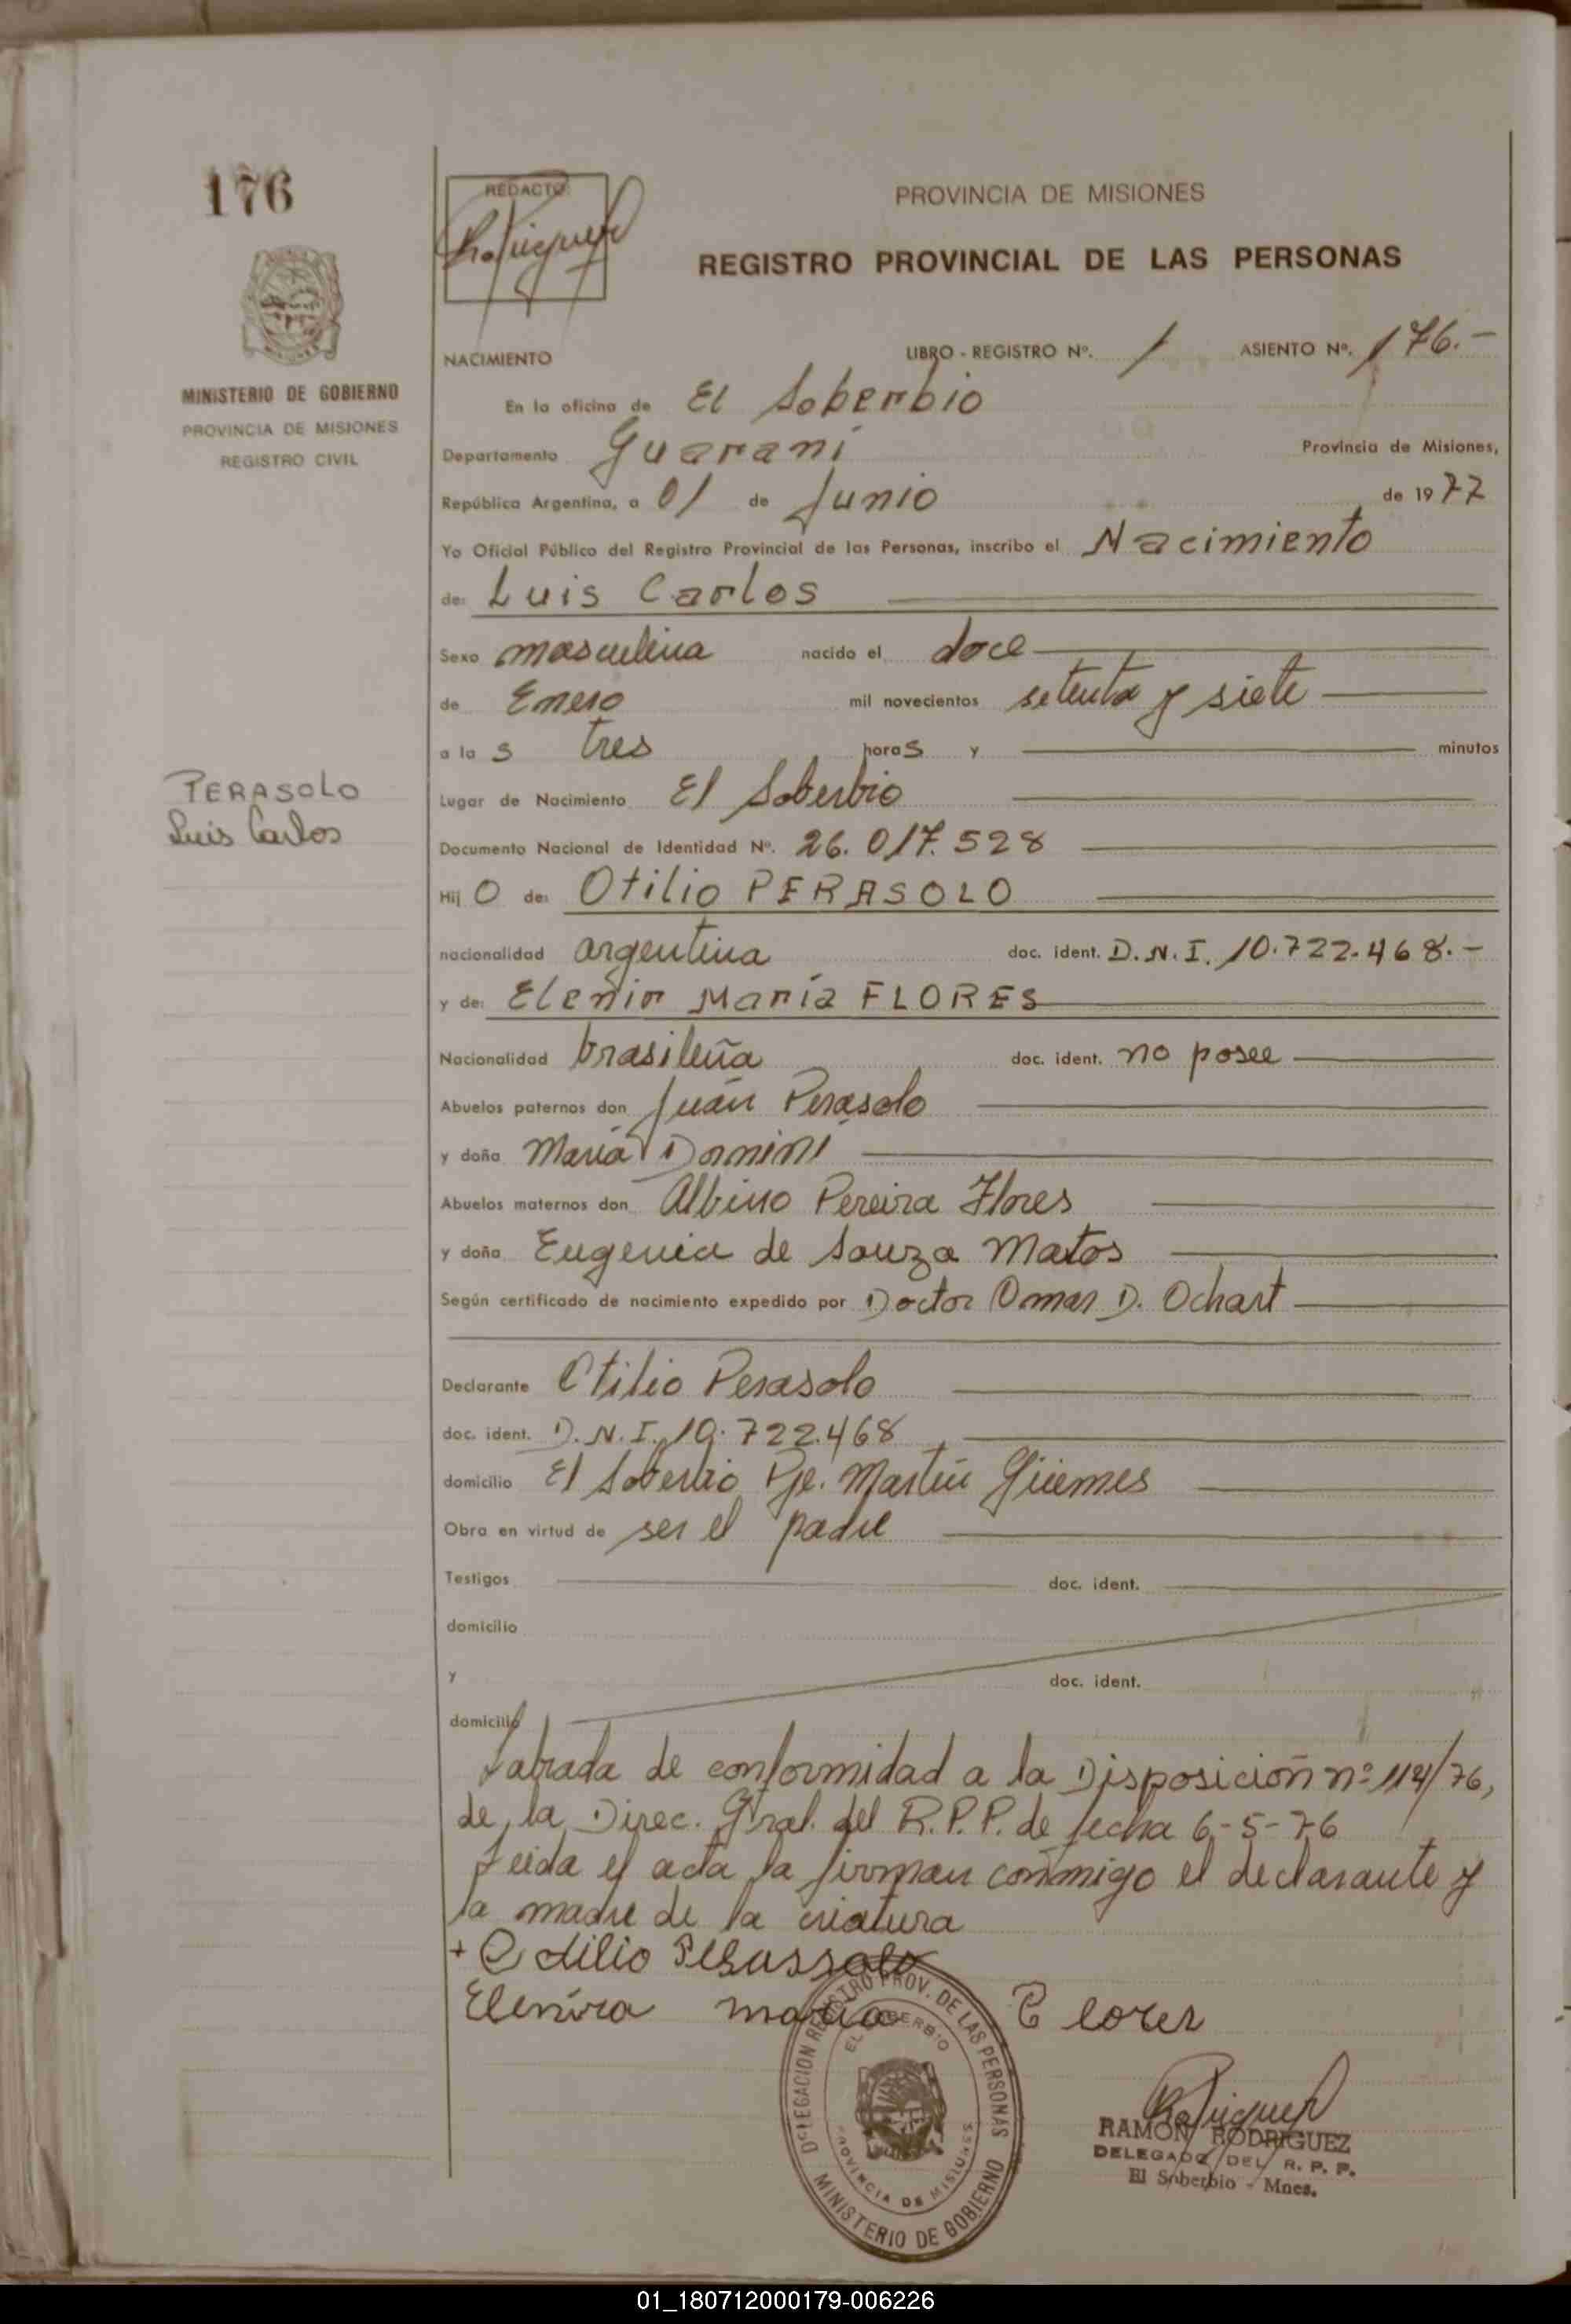 176
REDACTO:
PROVINCIA DE MISIONES
REGISTRO PROVINCIAL DE LAS PERSONAS
MINISTERIO DE GOBIERNO
PROVINCIA DE MISIONES
REGISTRO CIVIL
NACIMIENTO LIBRO - REGISTRO Nº. 1 ASIENTO Nº. 176.-
En la oficina de El Soberbio
Departamento Guaraní Provincia de Misiones,
República Argentina, a 01 de Junio de 1977
Yo Oficial Público del Registro Provincial de las Personas, inscribo el Nacimiento
de: Luis Carlos
Sexo masculino nacido el doce
de Enero mil novecientos setenta y siete
a la s tres horas y minutos
PERASOLO
Luis Carlos
Lugar de Nacimiento El Soberbio
Documento Nacional de Identidad Nº. 26.017.528
Hij O de: Otilio PERASOLO
nacionalidad argentina doc. ident. D.N.I. 10.722.468.-
y de: Elenir María FLORES
Nacionalidad brasileña doc. ident. no posee
Abuelos paternos don Juán Perasolo
y doña María Dornini
Abuelos maternos don Albino Pereira Flores
y doña Eugenia de Souza Matos
Según certificado de nacimiento expedido por Doctor Omar D. Ochart
Declarante Otilio Perasolo
doc. ident. D.N.I. 10.722.468
domicilio El Soberbio Pje. Martín Güemes
Obra en virtud de ser el padre
Testigos doc. ident.
domicilio
y doc. ident.
domicilio
Labrada de conformidad a la Disposición nº 114/76,
de la Direc. Gral. del R.P.P. de fecha 6-5-76
Leida el acta la firman conmigo el declarante y
la madre de la criatura
+ Odilio
Elenira maria Flores
DELEGACION REGISTRO PROV. DE LAS PERSONAS
EL SOBERBIO
PROVINCIA DE MISIONES
MINISTERIO DE GOBIERNO
RAMON RODRIGUEZ
DELEGADO DEL R. P. P.
El Soberbio - Mnes.
01_180712000179-006226